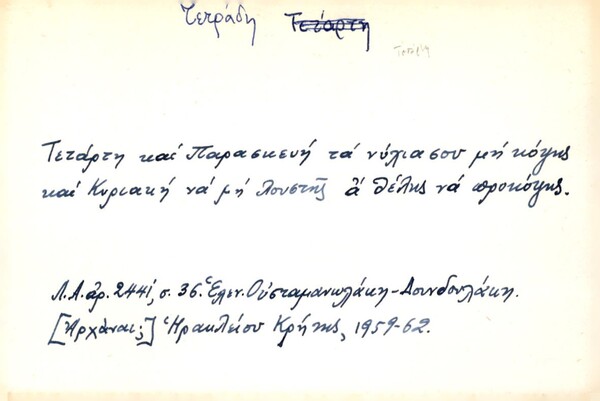 Τετράδη Τετάρτη
Τετάρτη καί Παρασκευή τά νύχια σου μή κόψης
καί Κυριακή νά μή λουστῆς ἅ θέλης νά προκόψης.
Λ.Α. ἀρ. 2441, σ. 36. Ἑλεν. Οὐσταμανωλάκη-Δουνδουλάκη.
[Ἀρχάναι;] Ἡρακλείου Κρήτης, 1959-62.